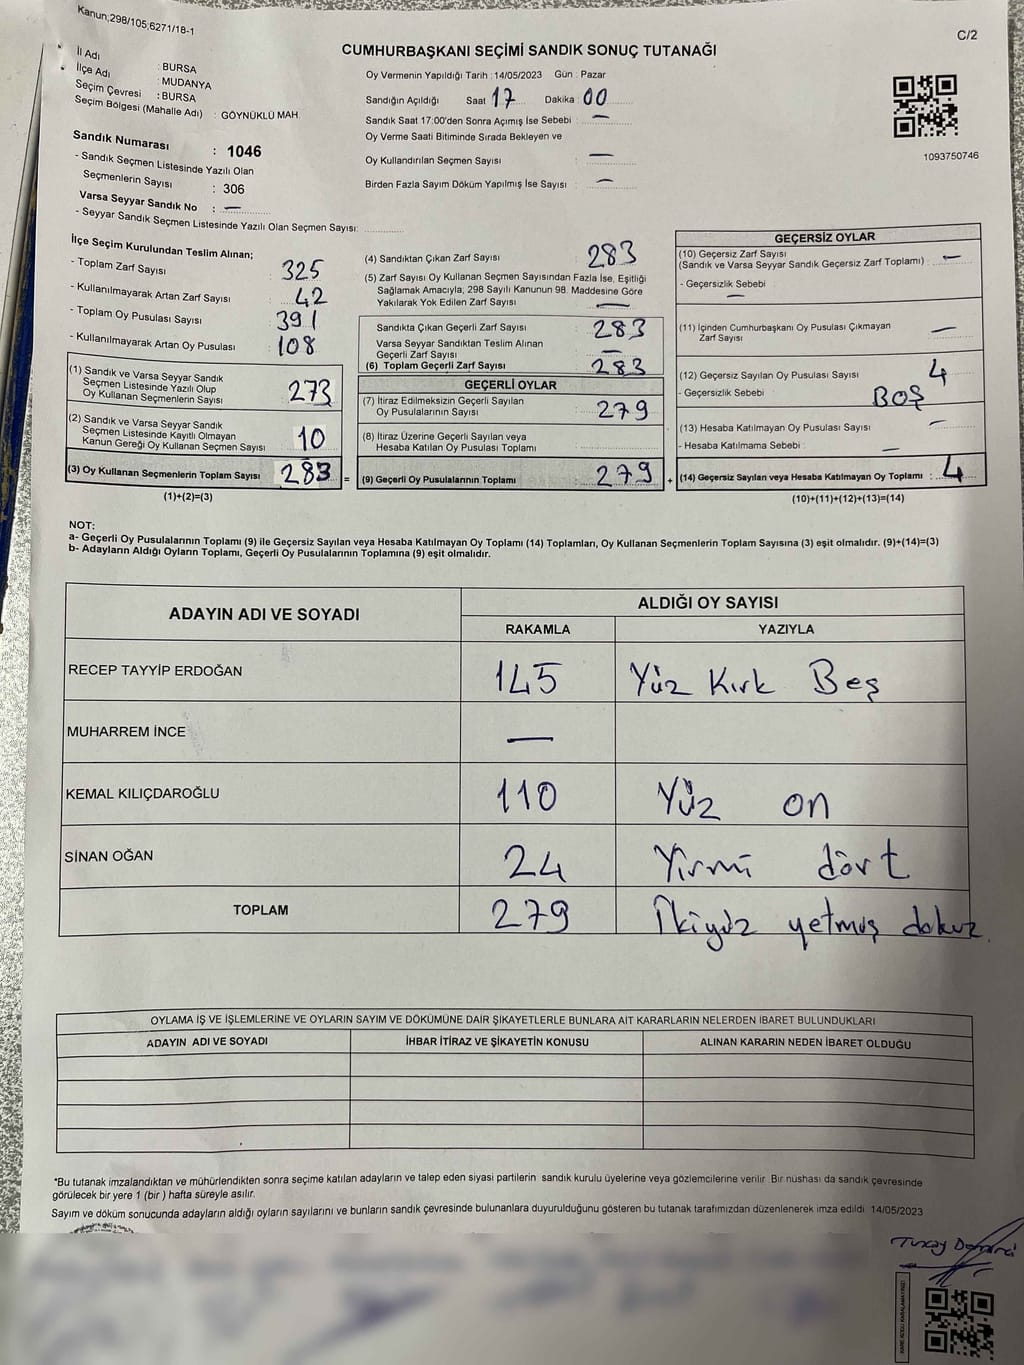 Kanun;298/105;6271/18-1
C/2
CUMHURBAŞKANI SEÇİMİ SANDIK SONUÇ TUTANAĞI
İl Adı : BURSA
İlçe Adı : MUDANYA
Seçim Çevresi : BURSA
Seçim Bölgesi (Mahalle Adı) : GÖYNÜKLÜ MAH
Oy Vermenin Yapıldığı Tarih : 14/05/2023 Gün : Pazar
Sandığın Açıldığı Saat 17 Dakika : 00
Sandık Saat 17:00'den Sonra Açımış İse Sebebi : —
Oy Verme Saati Bitiminde Sırada Bekleyen ve
Oy Kullandırılan Seçmen Sayısı : —
Birden Fazla Sayım Döküm Yapılmış İse Sayısı : —
1093750746
Sandık Numarası : 1046
- Sandık Seçmen Listesinde Yazılı Olan
Seçmenlerin Sayısı : 306
Varsa Seyyar Sandık No : —
- Seyyar Sandık Seçmen Listesinde Yazılı Olan Seçmen Sayısı:
İlçe Seçim Kurulundan Teslim Alınan;
- Toplam Zarf Sayısı : 325
- Kullanılmayarak Artan Zarf Sayısı : 42
- Toplam Oy Pusulası Sayısı : 391
- Kullanılmayarak Artan Oy Pusulası : 108
(1) Sandık ve Varsa Seyyar Sandık
Seçmen Listesinde Yazılı Olup
Oy Kullanan Seçmenlerin Sayısı : 273
(2) Sandık ve Varsa Seyyar Sandık
Seçmen Listesinde Kayıtlı Olmayan
Kanun Gereği Oy Kullanan Seçmen Sayısı : 10
(3) Oy Kullanan Seçmenlerin Toplam Sayısı : 283 =
(1)+(2)=(3)
(4) Sandıktan Çıkan Zarf Sayısı : 283
(5) Zarf Sayısı Oy Kullanan Seçmen Sayısından Fazla İse, Eşitliği
Sağlamak Amacıyla, 298 Sayılı Kanunun 98. Maddesine Göre
Yakılarak Yok Edilen Zarf Sayısı : —
Sandıkta Çıkan Geçerli Zarf Sayısı : 283
Varsa Seyyar Sandıktan Teslim Alınan
Geçerli Zarf Sayısı : —
(6) Toplam Geçerli Zarf Sayısı : 283
GEÇERLİ OYLAR
(7) İtiraz Edilmeksizin Geçerli Sayılan
Oy Pusulalarının Sayısı : 279
(8) İtiraz Üzerine Geçerli Sayılan veya
Hesaba Katılan Oy Pusulası Toplamı :
(9) Geçerli Oy Pusulalarının Toplamı : 279 +
GEÇERSİZ OYLAR
(10) Geçersiz Zarf Sayısı
(Sandık ve Varsa Seyyar Sandık Geçersiz Zarf Toplamı) : —
- Geçersizlik Sebebi :
—
(11) İçinden Cumhurbaşkanı Oy Pusulası Çıkmayan
Zarf Sayısı : —
(12) Geçersiz Sayılan Oy Pusulası Sayısı : 4
- Geçersizlik Sebebi : BOŞ
(13) Hesaba Katılmayan Oy Pusulası Sayısı : —
- Hesaba Katılmama Sebebi : —
(14) Geçersiz Sayılan veya Hesaba Katılmayan Oy Toplamı : 4
(10)+(11)+(12)+(13)=(14)
NOT:
a- Geçerli Oy Pusulalarının Toplamı (9) ile Geçersiz Sayılan veya Hesaba Katılmayan Oy Toplamı (14) Toplamları, Oy Kullanan Seçmenlerin Toplam Sayısına (3) eşit olmalıdır. (9)+(14)=(3)
b- Adayların Aldığı Oyların Toplamı, Geçerli Oy Pusulalarının Toplamına (9) eşit olmalıdır.
ADAYIN ADI VE SOYADI ALDIĞI OY SAYISI
RAKAMLA YAZIYLA
RECEP TAYYİP ERDOĞAN 145 Yüz Kırk Beş
MUHARREM İNCE —
KEMAL KILIÇDAROĞLU 110 Yüz on
SİNAN OĞAN 24 Yirmi dört
TOPLAM 279 İkiyüz yetmiş dokuz.
OYLAMA İŞ VE İŞLEMLERİNE VE OYLARIN SAYIM VE DÖKÜMÜNE DAİR ŞİKAYETLERLE BUNLARA AİT KARARLARIN NELERDEN İBARET BULUNDUKLARI
ADAYIN ADI VE SOYADI İHBAR İTİRAZ VE ŞİKAYETİN KONUSU ALINAN KARARIN NEDEN İBARET OLDUĞU
*Bu tutanak imzalandıktan ve mühürlendikten sonra seçime katılan adayların ve talep eden siyasi partilerin sandık kurulu üyelerine veya gözlemcilerine verilir Bir nüshası da sandık çevresinde
görülecek bir yere 1 (bir ) hafta süreyle asılır.
Sayım ve döküm sonucunda adayların aldığı oyların sayılarını ve bunların sandık çevresinde bulunanlara duyurulduğunu gösteren bu tutanak tarafımızdan düzenlenerek imza edildi 14/05/2023